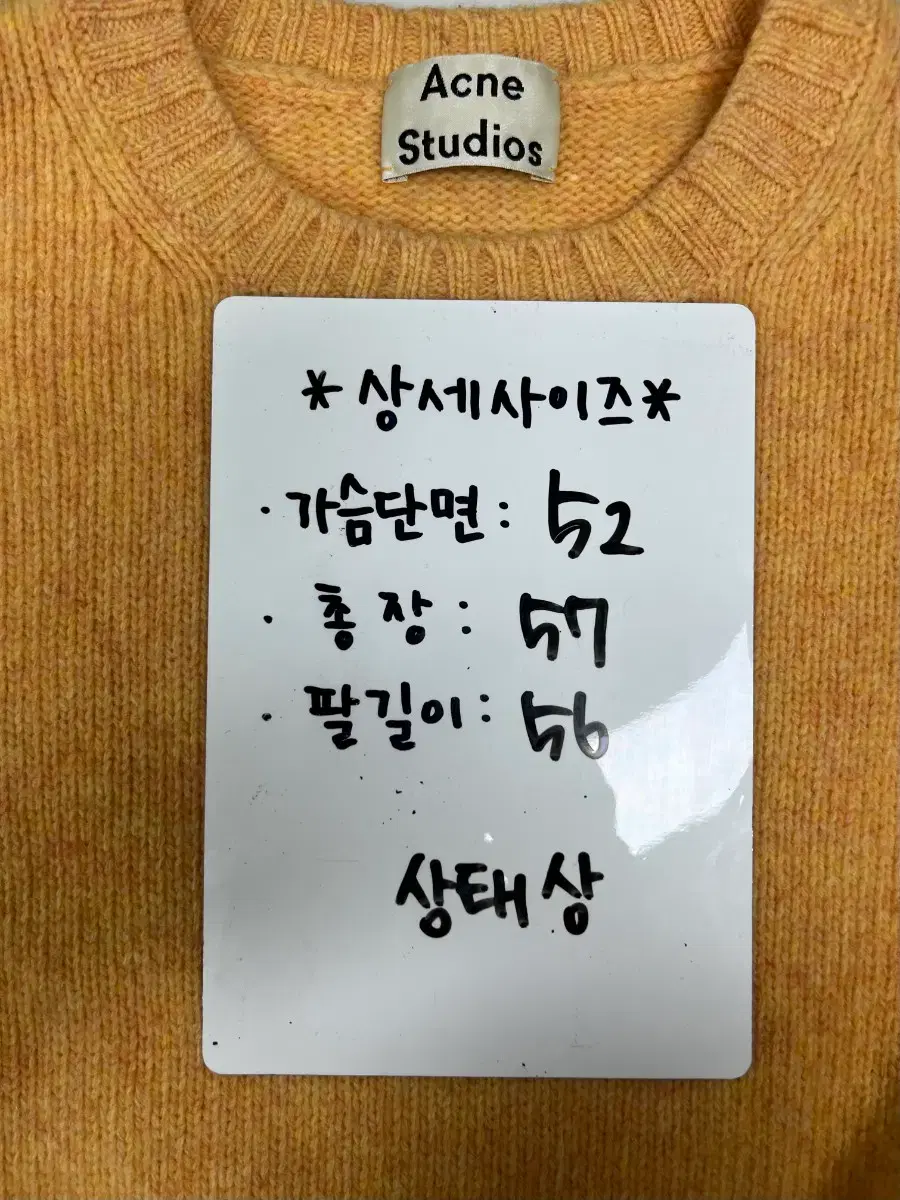 Acne
Studios
*상세사이즈*
· 가슴단면 : 52
· 총장 : 57
· 팔길이 : 56
상태 상